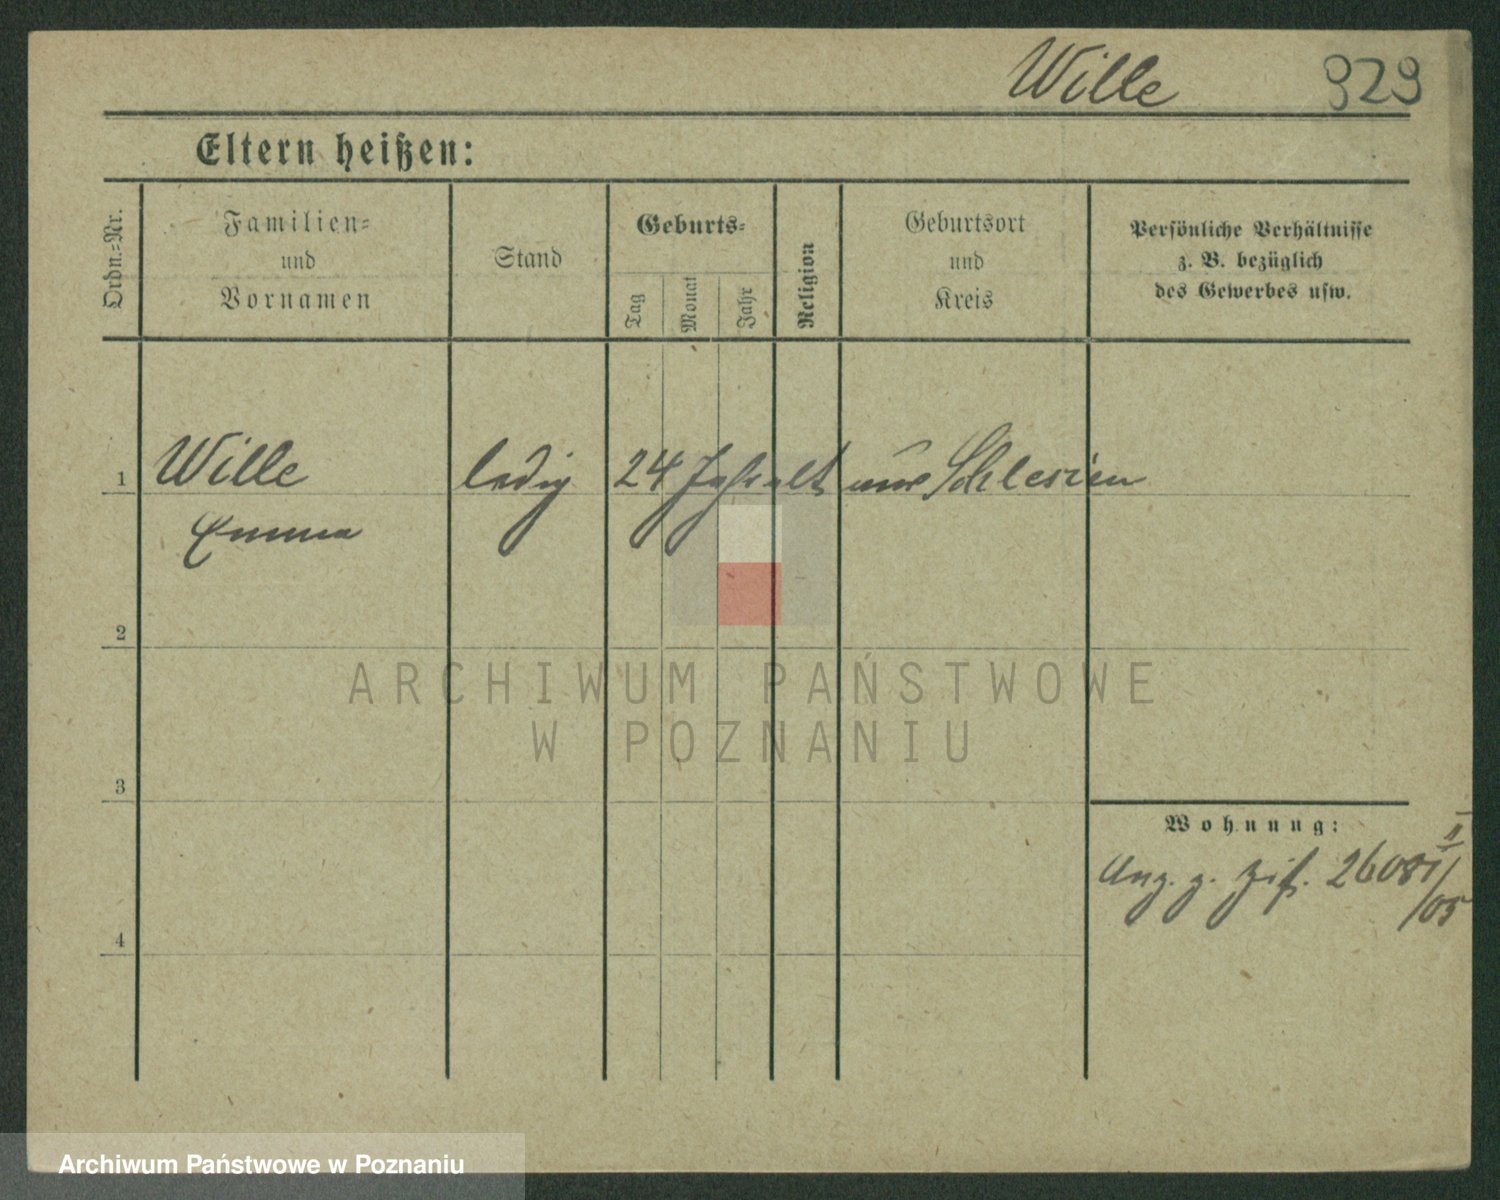 Wille 929
Eltern heißen:
Ordn.=Nr.
Familien=
und
Vornamen
Stand
Geburts=
Tag
Monat
Jahr
Religion
Geburtsort
und
Kreis
Persönliche Verhältnisse
z. B. bezüglich
des Gewerbes usw.
1 Wille ledig 24 Jahr alt aus Schlesien
Emma
2
ARCHIWUM PAŃSTWOWE
W POZNANIU
3
Wohnung:
Ang. z. 2608
/05
4
Archiwum Państwowe w Poznaniu